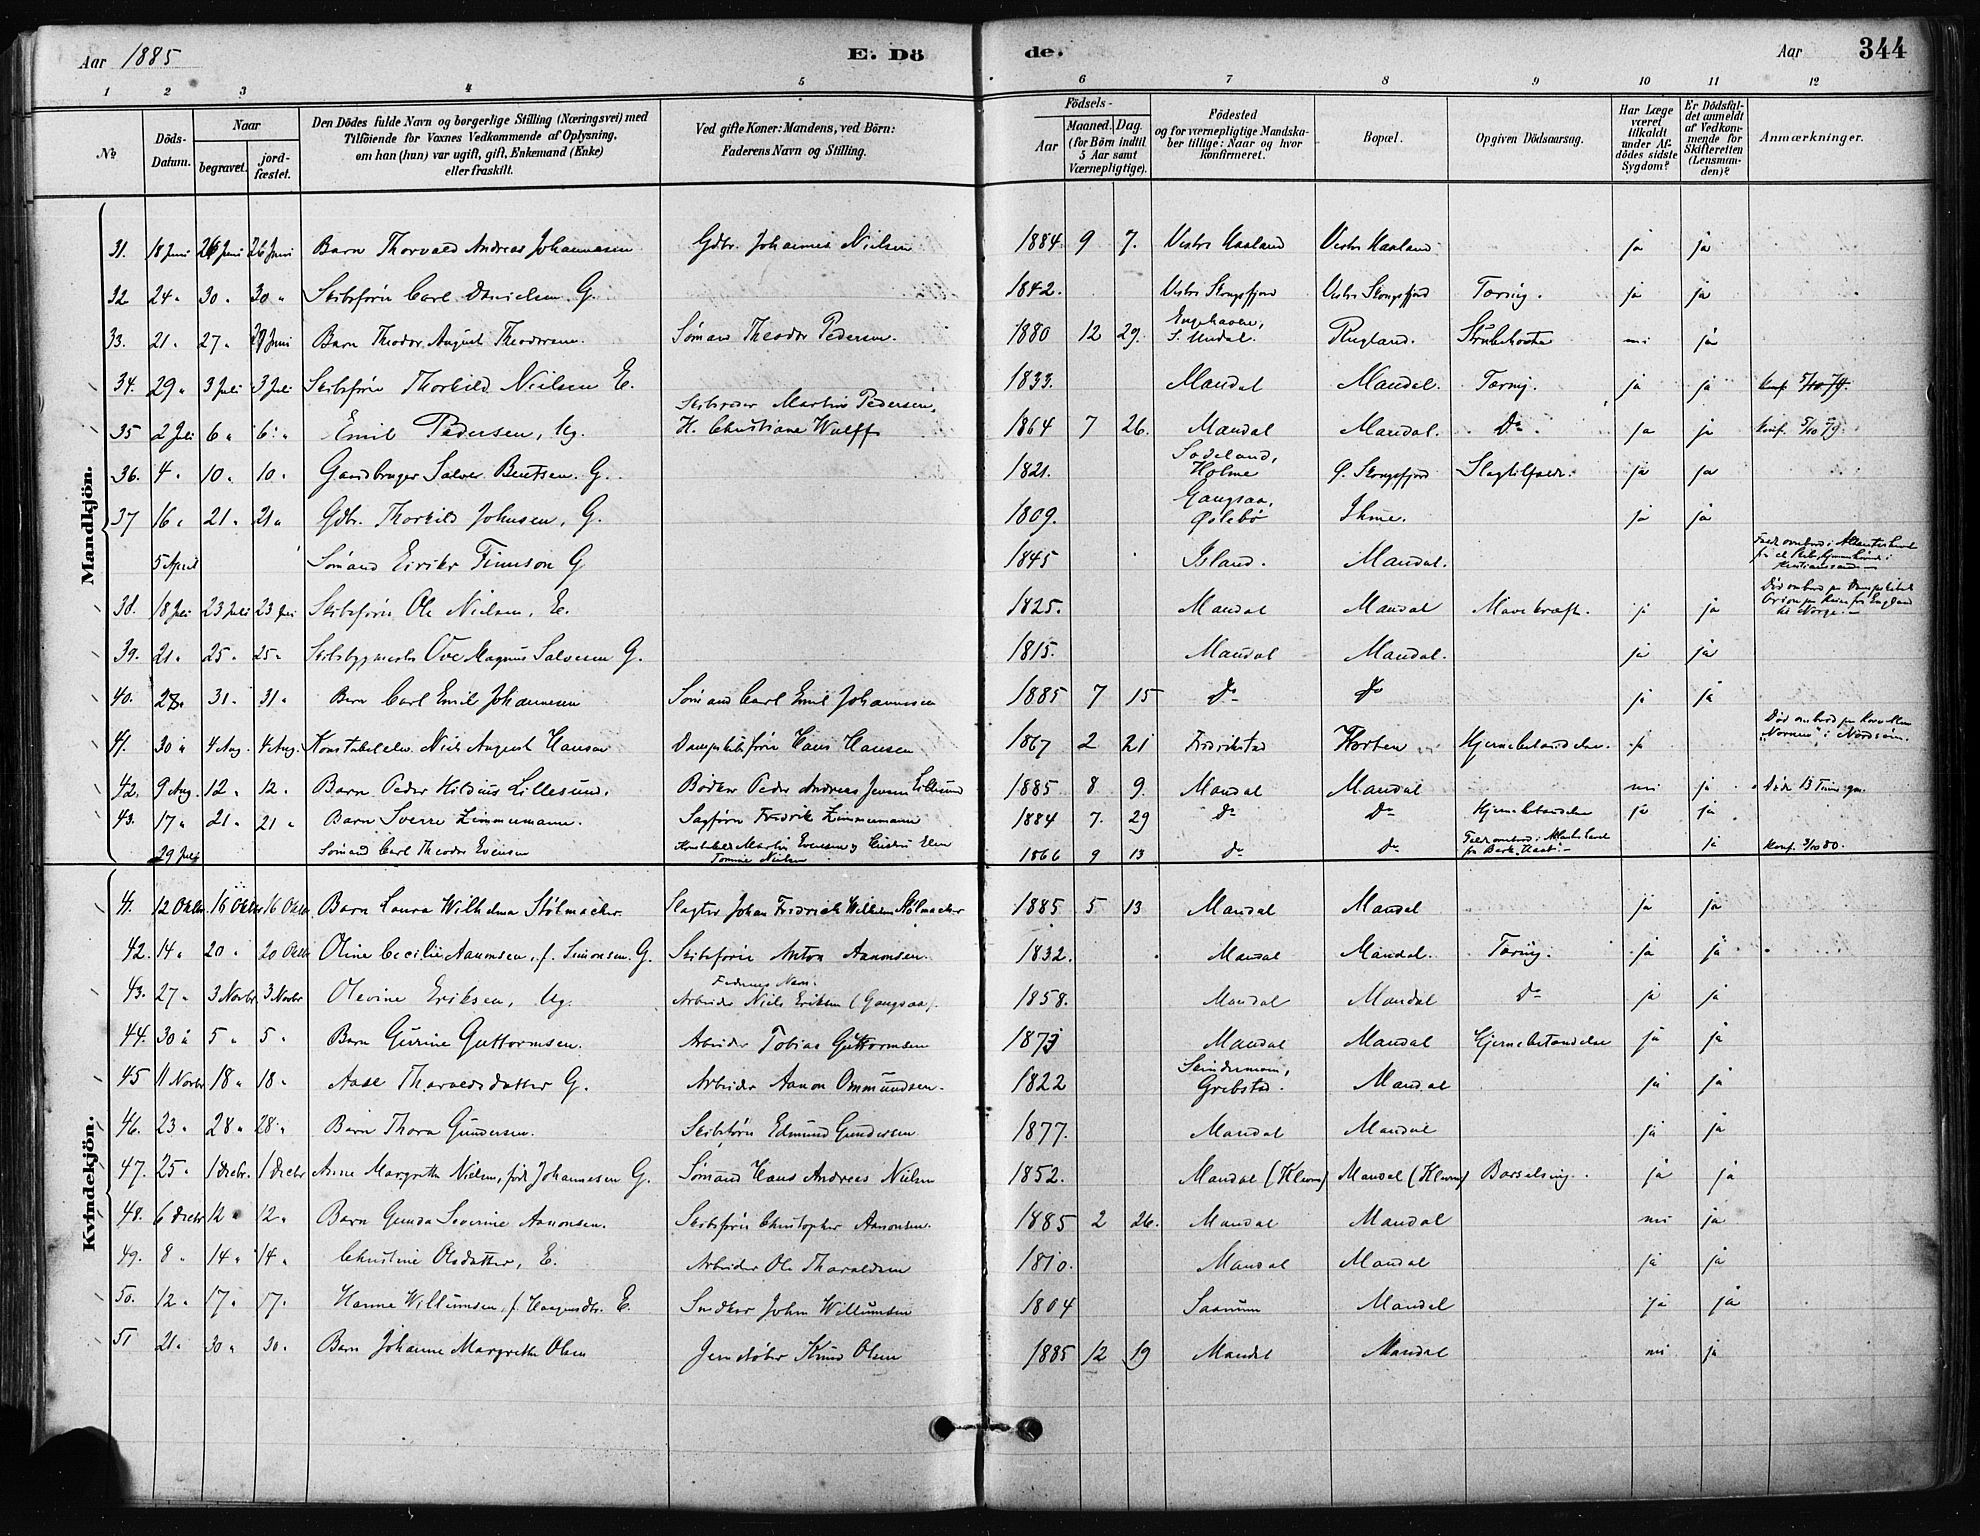 Aar 1885 E. Döde. Aar 344
1 2 3 4 5 6 7 8 9 10 11 12
No
Döds-Datum.
Naar
begravet.
jordfæstet.
Den Dödes fulde Navn og borgerlige Stilling (Næringsvei) med
Tilföiende for Voxnes Vedkommende af Oplysning,
om han (hun) var ugift, gift, Enkemand (Enke)
eller fraskilt.
Ved gifte Koner: Mandens, ved Börn:
Faderens Navn og Stilling.
Födsels-
Aar
Maaned. Dag.
(for Börn indtil
5 Aar samt
Værnepligtige).
Födested
og for værnepligtige Mandskaber
tillige: Naar og hvor
konfirmeret.
Bopæl.
Opgiven Dödsaarsag.
Har Læge
været
tilkaldt
under Afdödes
sidste
Sygdom?
Er Dödsfaldet
anmeldt
af Vedkommende
for
Skifteretten
(Lensmanden)?
Anmærkninger.
Mandkjön.
31. 18 Juni 26 Juni 26 Juni Barn Thorvald Andreas Johannesen Gdbr. Johannes Nielsen 1884 9 7. Vestre Haaland Vestre Haaland ja ja
32 24 " 30 " 30 " Skibsfører Carl Danielsen G. 1842. Vestre Skougsfjord Vestre Skougsfjord Tæring. ja ja
33. 21 " 27 " 27 Juni Barn Theodor August Theodorsen. Sømand Theodor Pedersen. 1880 12 29. Engehaven, S. Undal. Rugland. Strubehoste nei ja
34. 29 " 3 Juli 3 Juli Skibsfører Thorkild Nielsen E. 1833. Mandal Mandal. Tæring. ja ja Konf. 5/10 79.
35 2 Juli 6 " 6 " Emil Pedersen, Ug. Skibsreder Martin Pedersen, H. Christiane Wulff 1864 7 26. Mandal Mandal. Do ja ja Konf. 5/10 79.
36. 4 " 10 " 10 " Gaardbruger Salve Bentsen. G. 1821. Holme Ø. Skougsfjord Slagtilfælde. ja ja
37 16 " 21 " 21 " Gdbr. Thorkild Johnsen, G. 1809. Gangsaa, Øslebø Ihme. ja ja
5 April Sømand Eirikr Finnson G 1845 Island. Mandal. Faldt ombord i Atlanterhavet
38. 18 Juli 23 Juli 23 Juli Skibsfører Ole Nielsen, E. 1825. Mandal Mandal Mavekræft. ja ja Død ombord paa Dampskibet Orion paa Reise fra England til Norge.
39. 21 " 25 " 25 " Skibsbygmester Ove Magnus Salvesen G. 1815. Mandal Mandal. ja ja
40. 28 " 31 " 31 " Barn Carl Emil Johannesen Sømand Carl Emil Johannesen 1885 7 15 Do Do ja ja
41. 30 " 4 Aug. 4 Aug. Konstabelelev Niels August Hansen Dampskibsfører Hans Hansen 1867 2 21 Fredrikstad Horten Hjernebetændelse. ja Død ombord paa Korvetten "Nornen" i Nordsøen.
42. 9 Aug. 12 " 12 " Barn Peder Lillesund. Bødker Peder Andreas Jensen Lillesund 1885 8 9. Mandal Mandal nei ja Døde 13 Timer gm.
43. 17 " 21 " 21 " Barn Sverre Zimmermann. Sagfører Fredrik Zimmermann 1884 7. 29 Do Do Hjernebetændelse ja ja
29 Juli Sømand Carl Theodor Evensen Konstabel Martin Evensen og Hustru Tomine Nielsen 1866 9 13 Do Do Faldt ombord i Atlanterhavet fra Bark ja Konf. 3/10 80.
Kvindekjön.
41. 12 Oktbr. 16 Oktbr 16 Oktbr Barn Laura Wilhelma Stølmacker Slagter Johan Fredrick Wilhelm Stølmacker 1885 5 13 Mandal Mandal ja ja
42. 14 " 20 " 20 Oktbr Oline Cecilie Aanonsen, f. Simonsen G. Skibsfører Anton Aanonsen. 1832. Mandal Mandal. Tæring. ja ja
43. 27 " 3 Novbr. 3 Novbr Olevine Eriksen, Ug. Faderens Navn: Arbeider Niels Eriksen (Gangsaa). 1858. Mandal Mandal Do ja ja
44. 30 " 5 " 5 " Barn Gurine Guttormsen. Arbeider Tobias Guttormsen 1873 Mandal Mandal Hjernebetændelse ja ja
45 11 Novbr 18 " 18 " Aase Tharaldsdatter G. Arbeider Aanon Ommundsen. 1822 Grebstad. Mandal ja ja
46. 23 " 28 " 28 " Barn Thora Gundersen. Skibsfører Edmund Gundersen 1877. Mandal Mandal ja ja
47. 25 " 1 Decbr. 1 Decbr Anne Margrethe Nielsen, født Johannesen G. Sømand Hans Andreas Nielsen 1852. Mandal (Kleven) Mandal (Kleven) Barselseng. ja ja
48. 6 Decbr 12 " 12 " Barn Gunda Severine Aanonsen. Skibsfører Christopher Aanonsen. 1885 2 26. Mandal Mandal nei ja
49. 8 " 14 " 14 " Christine Olsdatter, E. Arbeider Ole Tharaldsen 1810. Mandal Mandal ja ja
50. 12 " 17 " 17 " Hanne Willumsen, f. E. Snedker John Willumsen 1804 Saanum Mandal ja ja
51 21 " 30 " 30 " Barn Johanne Margrethe Olsen Jernstøber Knud Olsen 1885 12 19 Mandal Mandal nei ja